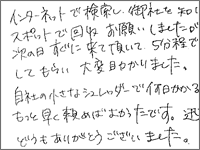 インターネットで検索し、御社を知り
スポットで回収お願いしましたが
次の日すぐに来て頂いて5分程で
してもらい大変助かりました。
自社の小さなシュレッダーで何日かかる
もっと早く頼めばよかったです。迅
どうもありがとうございました。